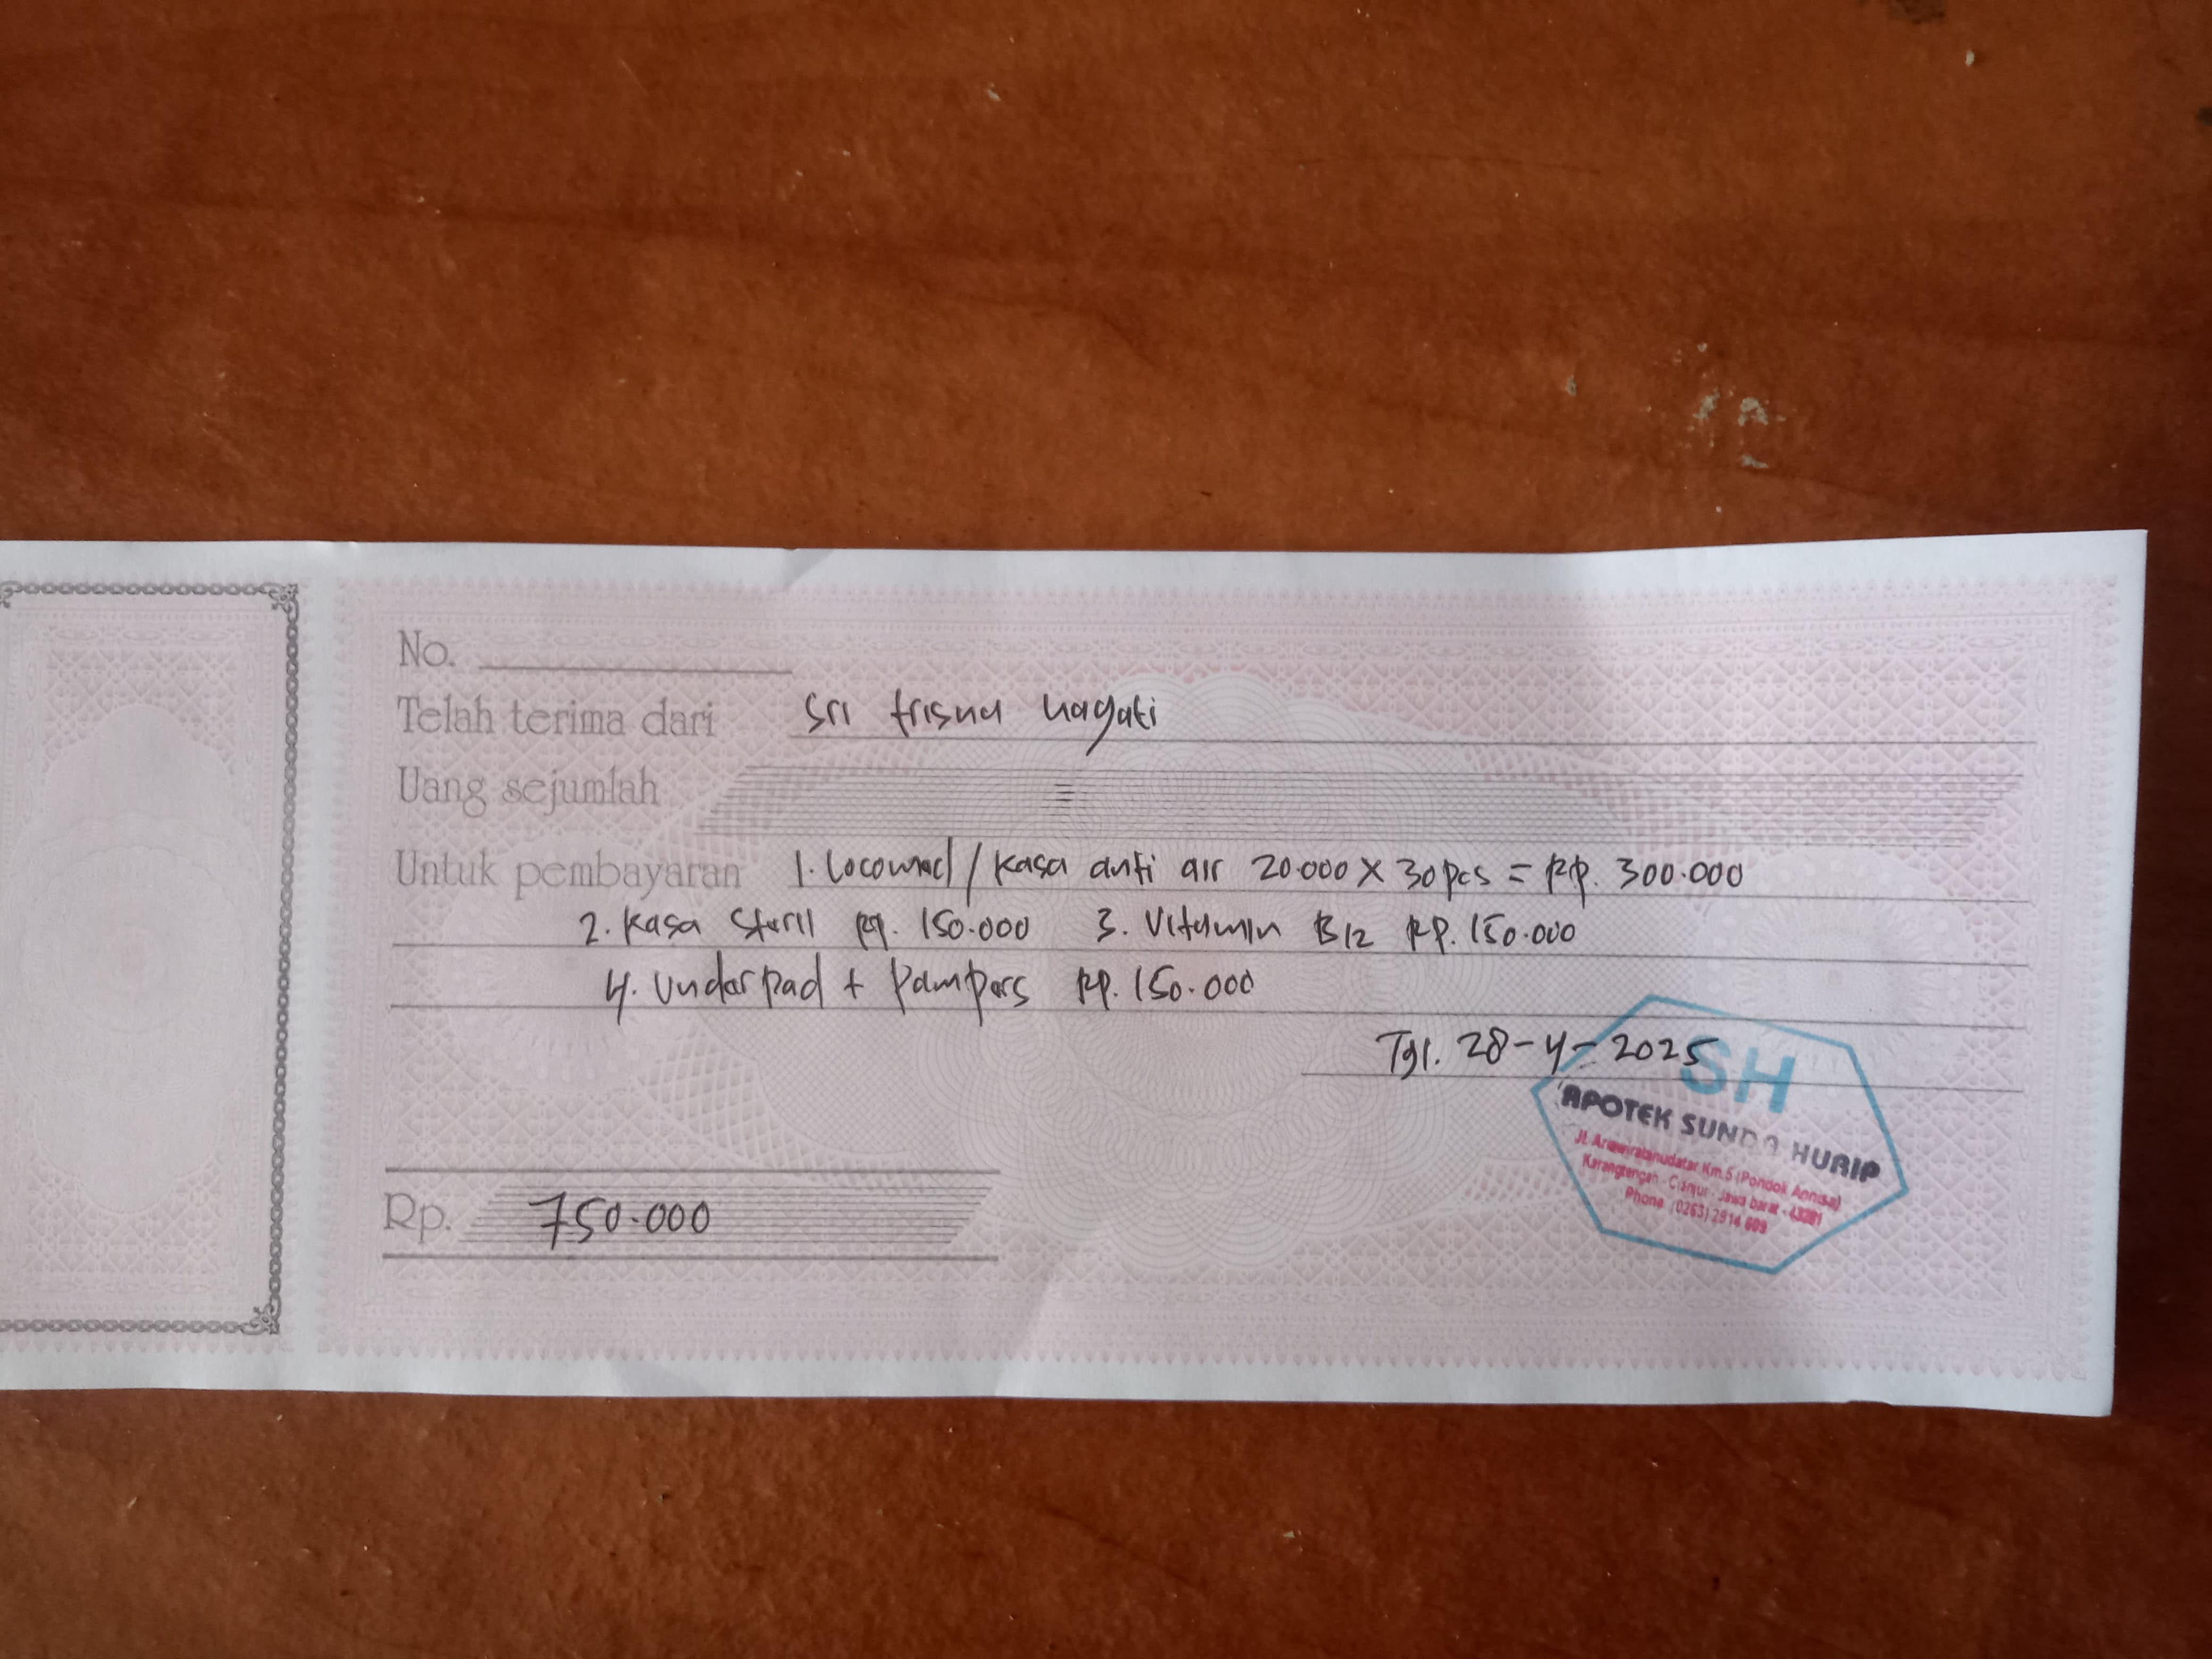 No.
Telah terima dari Sri trisna hayati
Uang sejumlah
Untuk pembayaran 1. Locowed / kasa anti air 20.000 X 30 pcs = Rp. 300.000
2. kasa steril Rp. 150.000 3. Vitamin B12 Rp. 150.000
4. Underpad + Pampers Rp. 150.000
Tgl. 28-4-2025
SH
APOTEK SUNDA HURIP
Km.5 (Pondok Annisa)
Karangtengah - Cianjur - Jawa barat - 43281
Phone : (0263) 2914 609
Rp. 750.000